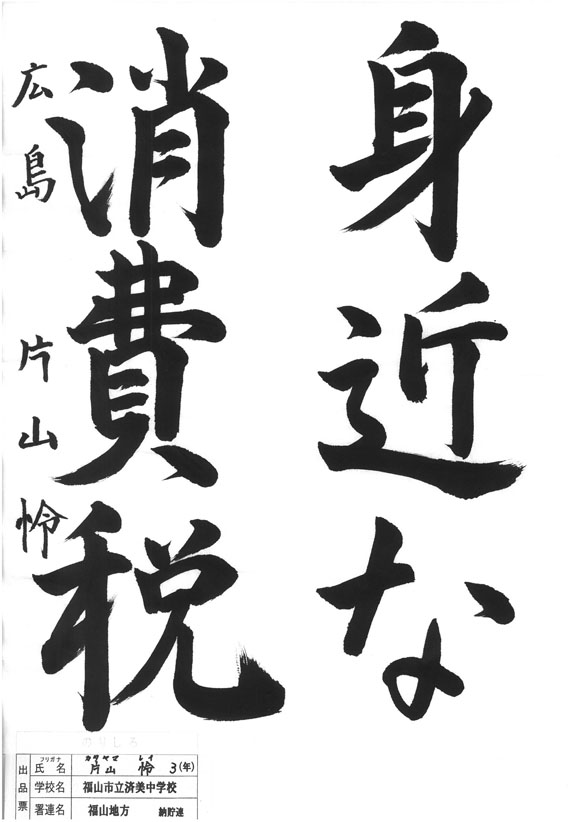 身近な
消費税
広島 片山怜
のりしろ
出品票
フリガナ カタヤマ レイ
氏名 片山 怜 3(年)
学校名 福山市立済美中学校
署連名 福山地方 納貯連